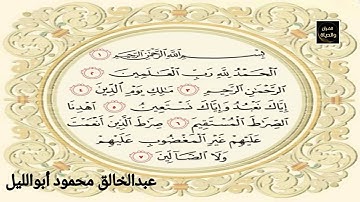 القرآن
والحياة
بِسْمِ اللَّهِ الرَّحْمَٰنِ الرَّحِيمِ ١
الْحَمْدُ لِلَّهِ رَبِّ الْعَالَمِينَ ٢
الرَّحْمَٰنِ الرَّحِيمِ ٣ مَالِكِ يَوْمِ الدِّينِ ٤
إِيَّاكَ نَعْبُدُ وَإِيَّاكَ نَسْتَعِينُ ٥ اهْدِنَا
الصِّرَاطَ الْمُسْتَقِيمَ ٦ صِرَاطَ الَّذِينَ أَنْعَمْتَ
عَلَيْهِمْ غَيْرِ الْمَغْضُوبِ عَلَيْهِمْ
وَلَا الضَّالِّينَ ٧
عبدالخالق محمود أبوالليل